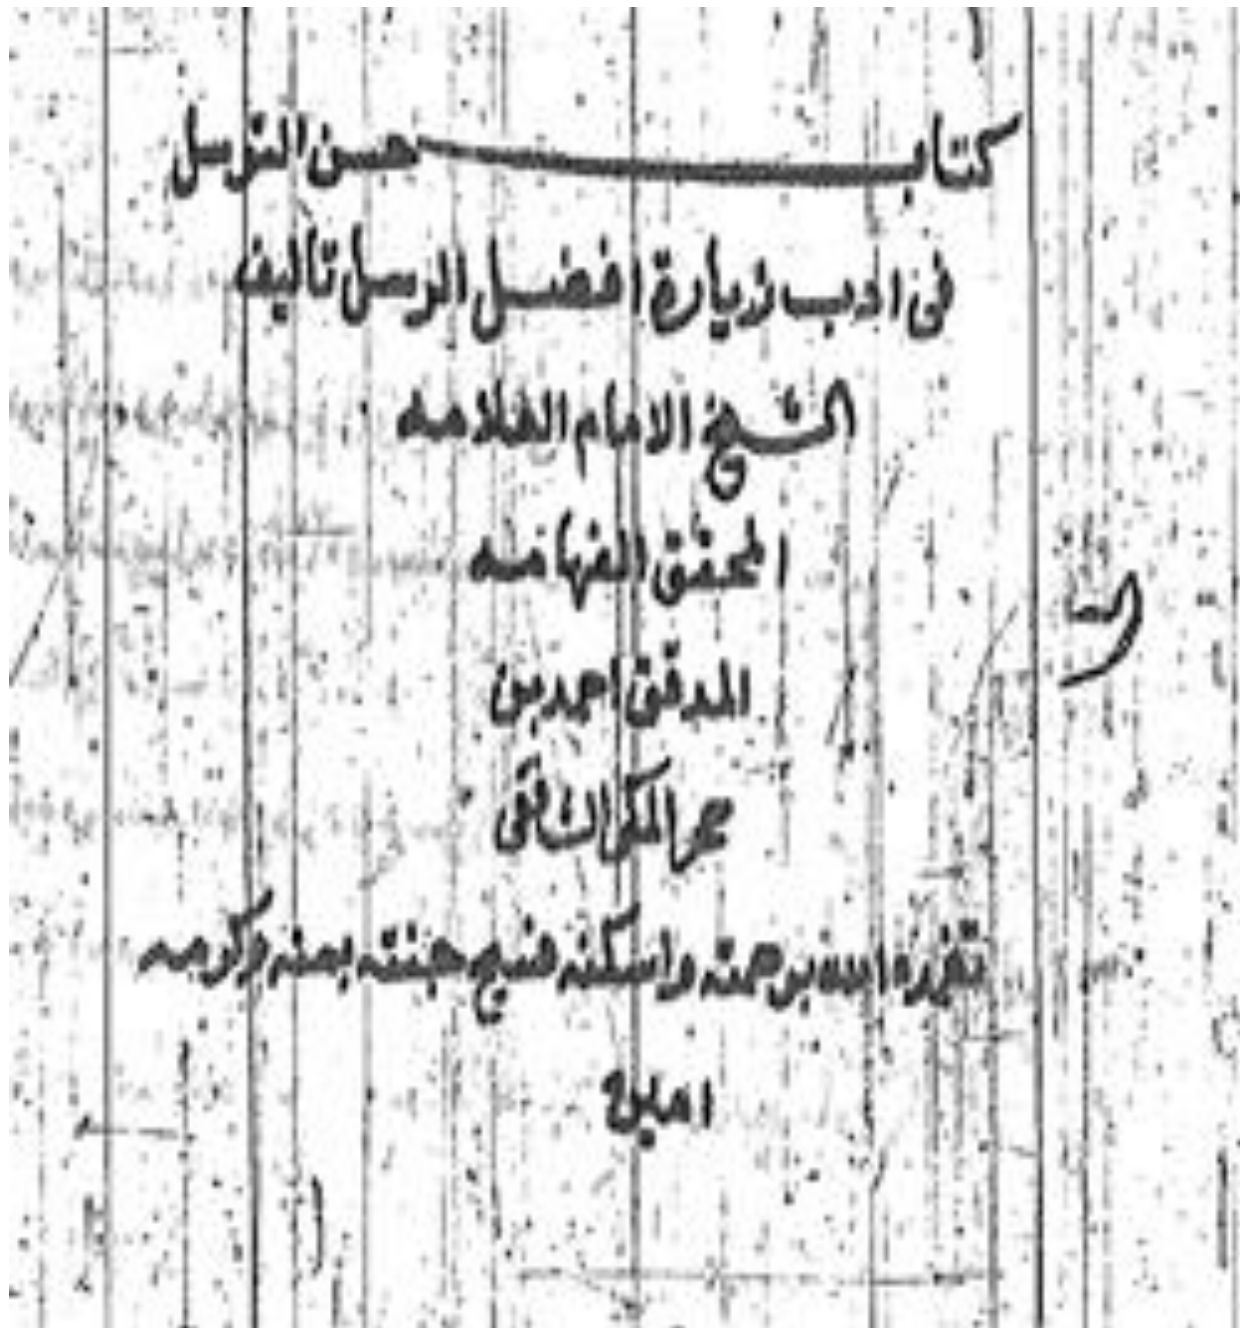 كتاب حسن التوسل
فى ادب زيارة افضل الرسل تاليف
الشيخ الامام العلامه
المحقق الفهامه
المدقق احمد بن
حجر المكى الشافعى
تغمده الله برحمته واسكنه فسيح جنته بمنه وكرمه
امين